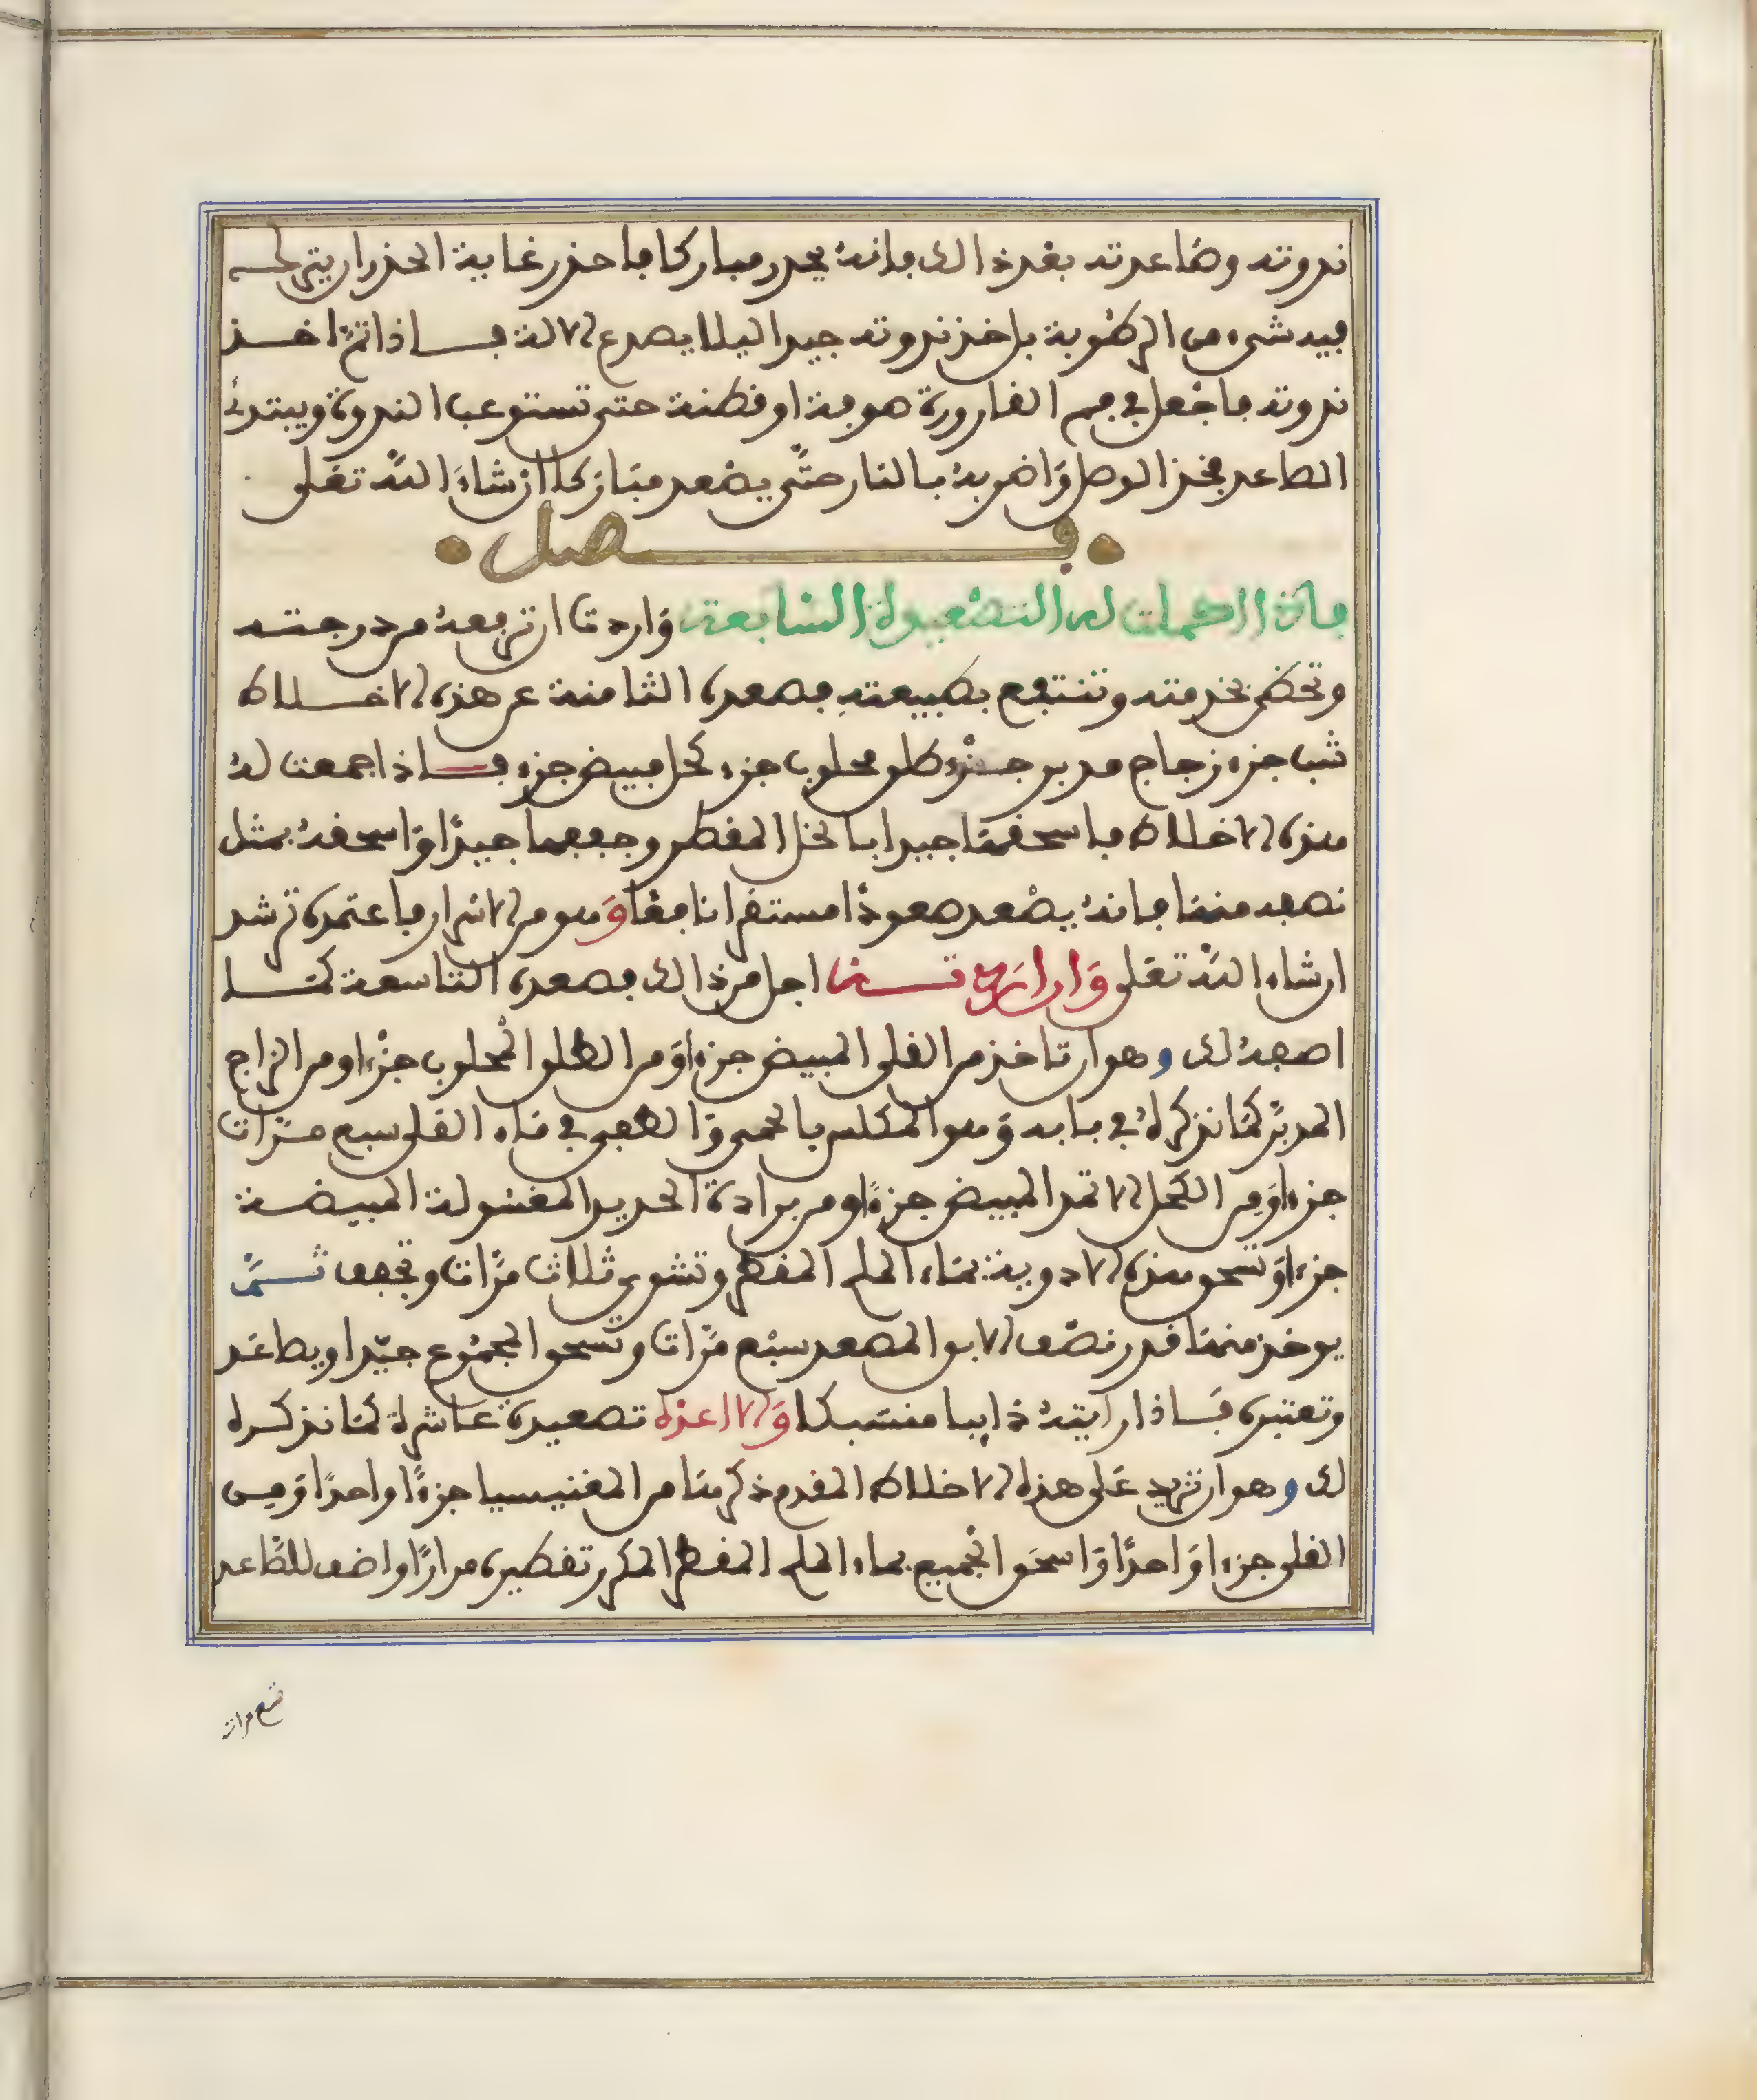 ندوته وصاعدته بعد ذالك فانه يجدد مباركا فاحذر غاية الحذر ان يترك
فيه شيء من الرطوبة بل خذ ندوته جيدا ليلا يصدع الالة فاذا تم اخذ
ندوته فاجعل في فم القارورة صوفة او قطنة حتى تستوعب الندوة ويبتدئ
الصاعد فخذ الوصل وَاضربهُ بالنار حتَّى يصْعد مبَاركا ان شاءَ اللَّه تعَلى
فصل
فاذا اكملت له التصْعيدة السَابعة وَاردتَ ان ترفعهُ من درجته
وتحْظى بخدمته وتنتفع بطبيعتهِ فصعده الثامنة عن هذه الاخلاط
شب جزء زجاج مدبر جزْء طلق محلوب جزء كحل مبيض جزء فاذا جمعت لهُ
هذه الاخلاط فاسحقهَا جيدا بالخل المقطر وجففها جيدًا وَاسحقهُ بمثل
نصفه منهَا فانهُ يصْعد صعودًا مستقرا نافعًا وَهو من الاسرار فاعتمده ترشد
ان شاء اللَّه تعَلى وَان اردت اجل من ذالك فصعده التاسعة كمَا
اصفهُ لك وهو ان تاخذ من القلي المبيض جزءا وَمن الطلق المْحلوب جزْءا ومن الزاج
المدبَّر كمَا نذكرهُ في بابه وَهو المكلس بالحمي وَالطفي في مَاء القلي سبع مرَّات
جزءا وَمِن الكحل الاثمد المبيض جزءًا ومن برادة الحديد المغسولة المبيضة
جزءا وَتسحق هذه الادوية بمَاء الملح المقطر وتشوى ثلاث مرَّات وتجفف ثمَّ
يوخذ منهَا قدر نصْف الابق المصعد سبْع مرَّات وتسحق المجمُوع جيّدا ويصاعَد
وتعتبره فَاذا رايتهُ ذايبا منسَبكا وَالا اعده تصعيدة عاشرة كمَا نذكره
لك وهو ان تزيد عَلى هذه الاخلاط المقدم ذكرهَا من المغنيسيا جزءًا واحدًا وَمن
القلي جزءا وَاحدًا وَاسحَق الجْميع بماء الملح المقطر المكرر تقطيره مرارًا واضف للصَّاعد
تسع مرات